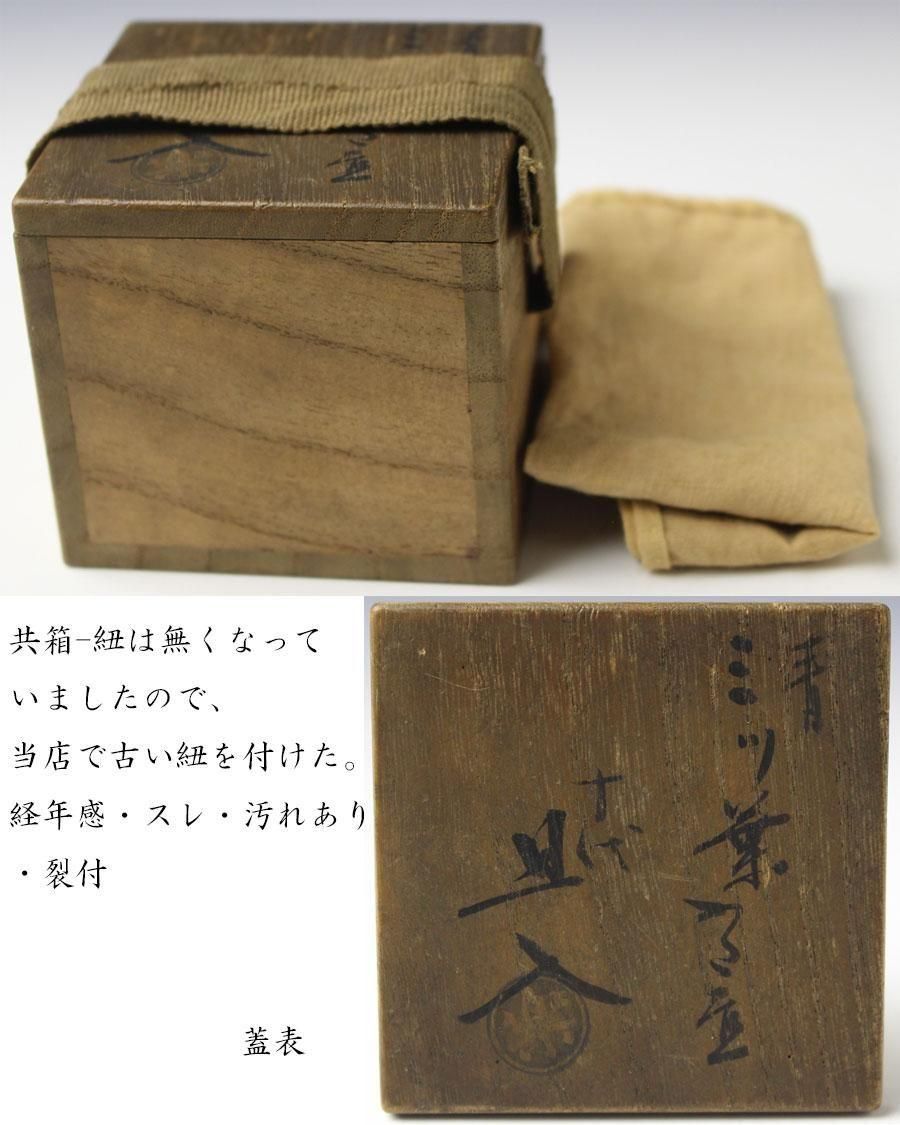 共箱-紐は無くなって
いましたので、
当店で古い紐を付けた。
経年感・スレ・汚れあり
・裂付
蓋表
青
三ツ葉
蓋置
十代
旦
入